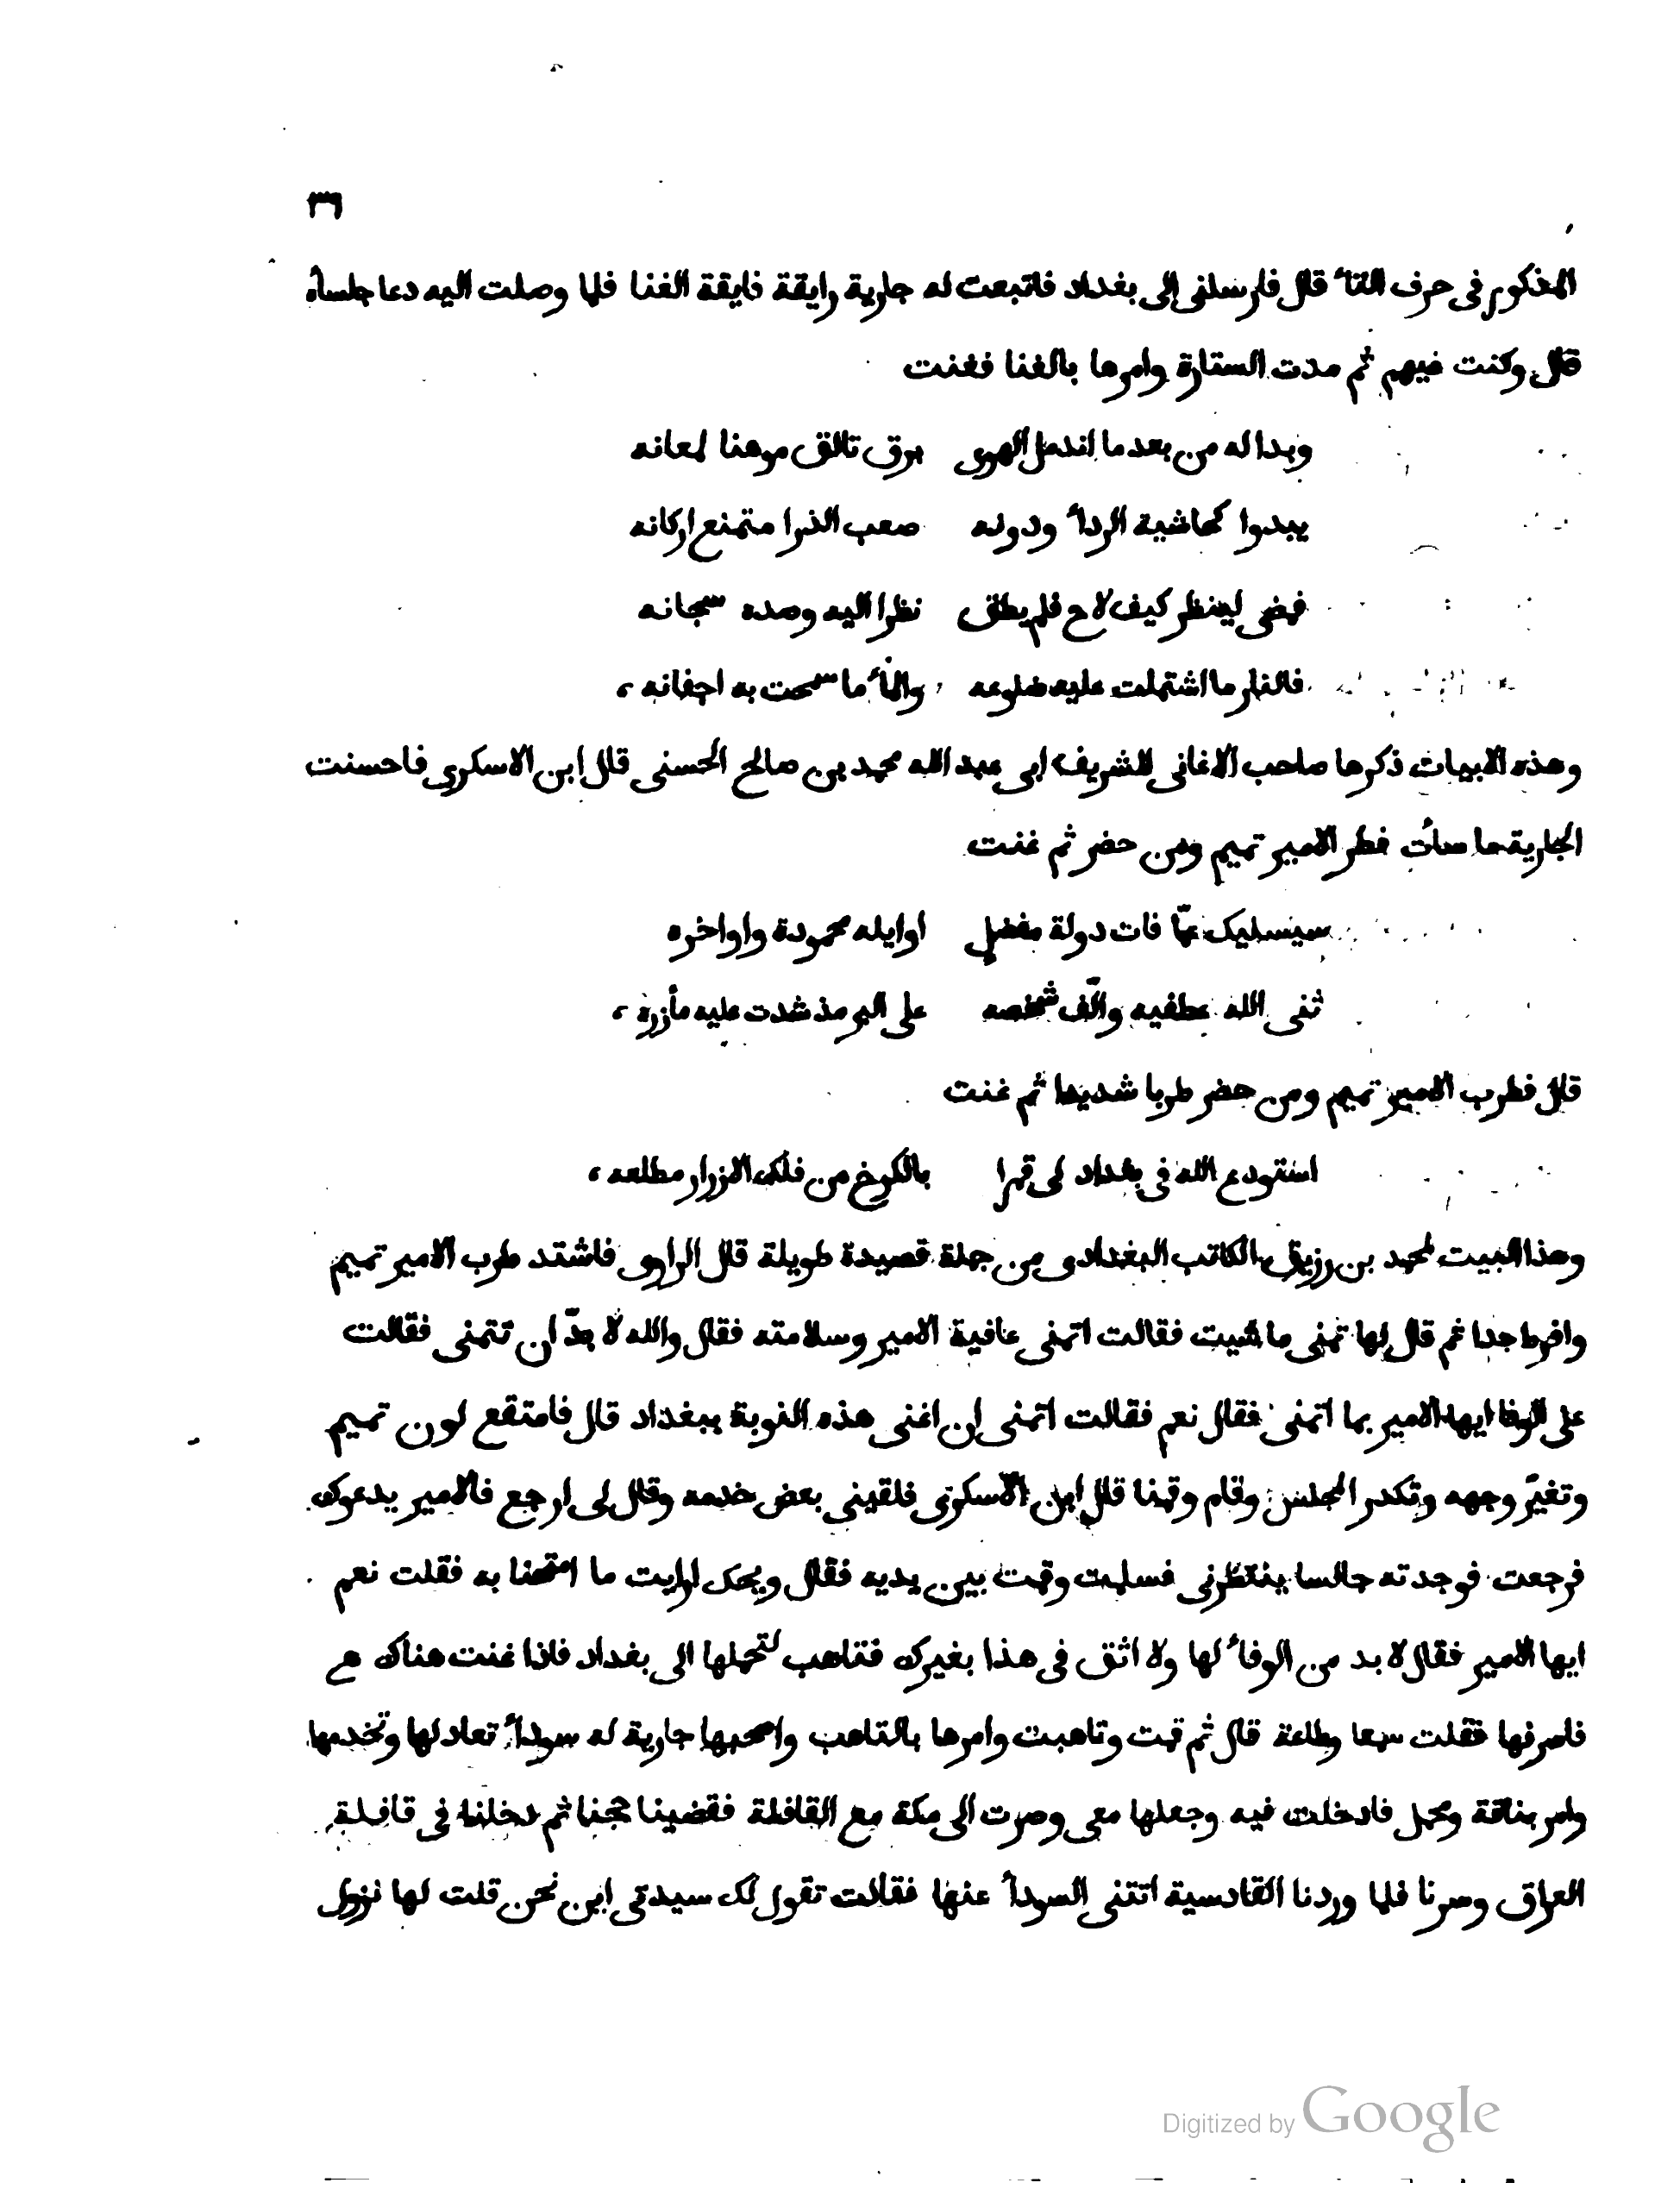 ٣٦
المذكور فى حرف التاء قال فارسلنى الى بغداد فابتعت له جارية رايقة فايقة الغنا فلما وصلت اليه دعا جلساه
قال وكنت فيهم ثم مدت الستارة وامرها بالغنا فغنت
وبدا له من بعد ما اندمل الهوى برق تالق موهنا لمعانه
يبدوا كحاشية الرداء ودونه صعب الذرا متمنع اركانه
فمضى لينظر كيف لاح فلم يطق نظرا اليه وصده سجانه
فالنار ما اشتملت عليه ضلوعه والماء ما سمحت به اجفانه
وهذه الابيات ذكرها صاحب الاغانى للشريف ابى عبد الله محمد بن صالح الحسنى قال ابن الاسكرى فاحسنت
الجارية ما ساءت فطر الامير تميم ومن حضر ثم غنت
سيسليك عمّا فات دولة مفضل اوايله محمودة واواخره
ثنى الله عطفيه والّف شخصه على البر مذ شدت عليه مأزره
قال فطرب الامير تميم ومن حضر طربا شديدا ثم غنت
استودع الله فى بغداد لى قمرا بالكرخ من فلك الازرار مطلعه
وهذا البيت لمحمد بن رزيق الكاتب البغدادى من جملة قصيدة طويلة قال الراوى فاشتد طرب الامير تميم
وافرط جدا ثم قال لها تمنى ما شيت فقالت اتمنى عافية الامير وسلامته فقال والله لا بدّ ان تتمنى فقالت
على الوفا ايها الامير بما اتمنى فقال نعم فقالت اتمنى ان اغنى هذه النوبة ببغداد قال فامتقع لون تميم
وتغيّر وجهه وتكدر المجلس وقام وقمنا قال ابن الاسكرى فلقينى بعض خدمه وقال لى ارجع فالامير يدعوك
فرجعت فوجدته جالسا ينتظرنى فسلمت وقمت بين يديه فقال ويحك ارايت ما امتحنا به فقلت نعم
ايها الامير فقال لا بد من الوفاء لها ولا اثق فى هذا بغيرك فتاهب لتحملها الى بغداد فاذا غنت هناك
فاصرفها فقلت سمعا وطاعة قال ثم قمت وتاهبت وامرها بالتاهب واصحبها جارية له سوداء تعادلها وتخدمها
وامر بناقة ومحمل فادخلت فيه وجعلها معى وصرت الى مكة مع القافلة فقضينا حجنا ثم دخلنا فى قافلة
العراق وسرنا فلما وردنا القادسية اتتنى السوداء عنها فقالت تقول لك سيدتى اين نحن قلت لها نزول
Digitized by Google